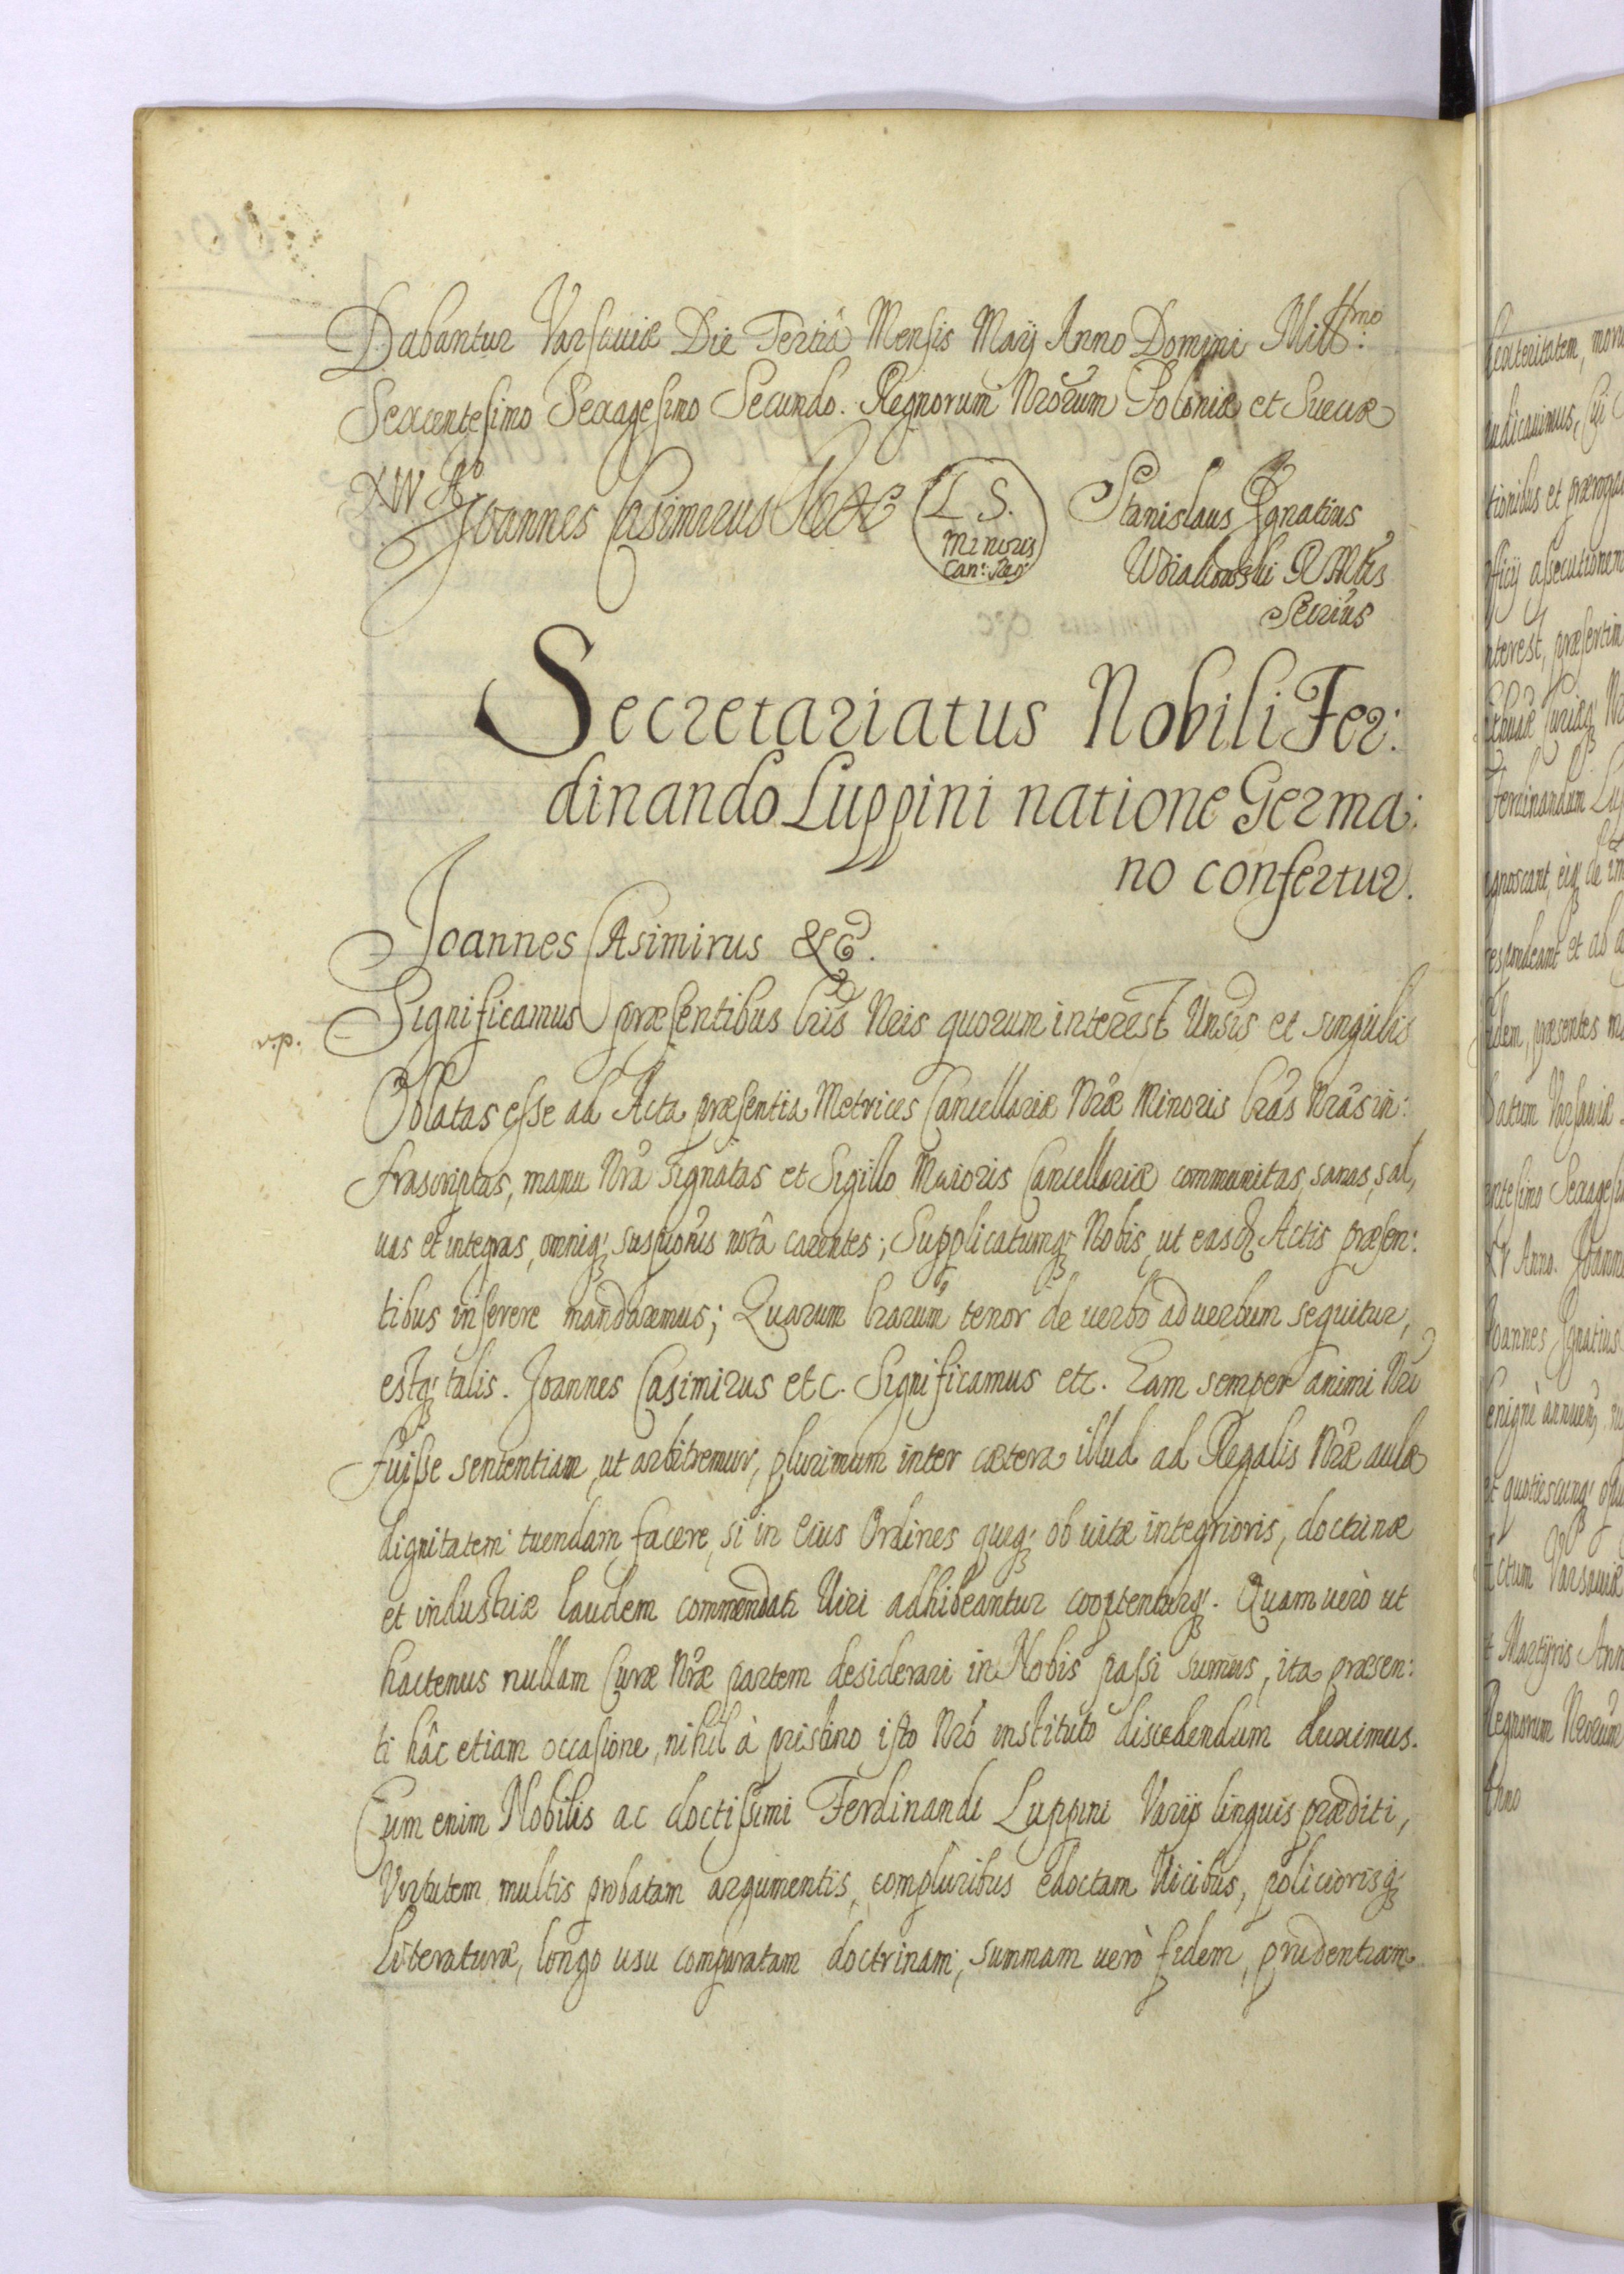 Dabantur Varsaviæ Die Tertiâ Mensis Maij Anno Domini Mill^mo:
Sexcentesimo Sexagesimo Secundo. Regnorum Nrorum Poloniæ et Sueciæ
XIV A^o
Joannes Casimirus Rex
L S.
Minoris
Can: Reg:
Stanislaus Ignatius
RMtis
Secrius
Secretariatus Nobili Fer:
dinando Luppini natione Germa:
no confertur.
Joannes Casimirus &c.
v.p.
Significamus præsentibus lris Nris quorum interest Unsis et singulis
Oblatas esse ad Acta præsentia Metrices Cancellariæ Nræ Minoris lras Nras in:
frascriptas, manu Nra signatas et Sigillo Maioris Cancellariæ communitas, sanas, sal,
uas et integras, omniq; suspionis notâ carentes; Supplicatumq; Nobis, ut easd Actis præsen:
tibus inserere mandaremus; Quarum lrarum tenor de uerbo ad uerbum sequitur,
estq; talis. Joannes Casimirus etc. Significamus etc. Eam semper animi Nri
fuisse sententiam, ut arbitremur, plurimum inter cætera illud ad Regalis Nræ aulæ
dignitatem tuendam facere, si in Eius Ordines quiq; ob uitæ integrioris, doctrinæ
et industriæ laudem commendati Uiri adhibeantur cooptenturq;. Quam uerò ut
hactenus nullam Curæ Nræ partem desiderari in Nobis passi sumus, ita præsen:
ti hâc etiam occasione, nihil à pristino isto Nro instituto discedendum duximus.
Cum enim Nobilis ac doctissimi Ferdinandi Luppini Varijs linguis præditi,
Virtutem multis probatam argumentis, compluribus edoctam Uicibus, policiorisq;
Literaturæ, longo usu comparatam doctrinam, summam uerò fidem, prudentiam